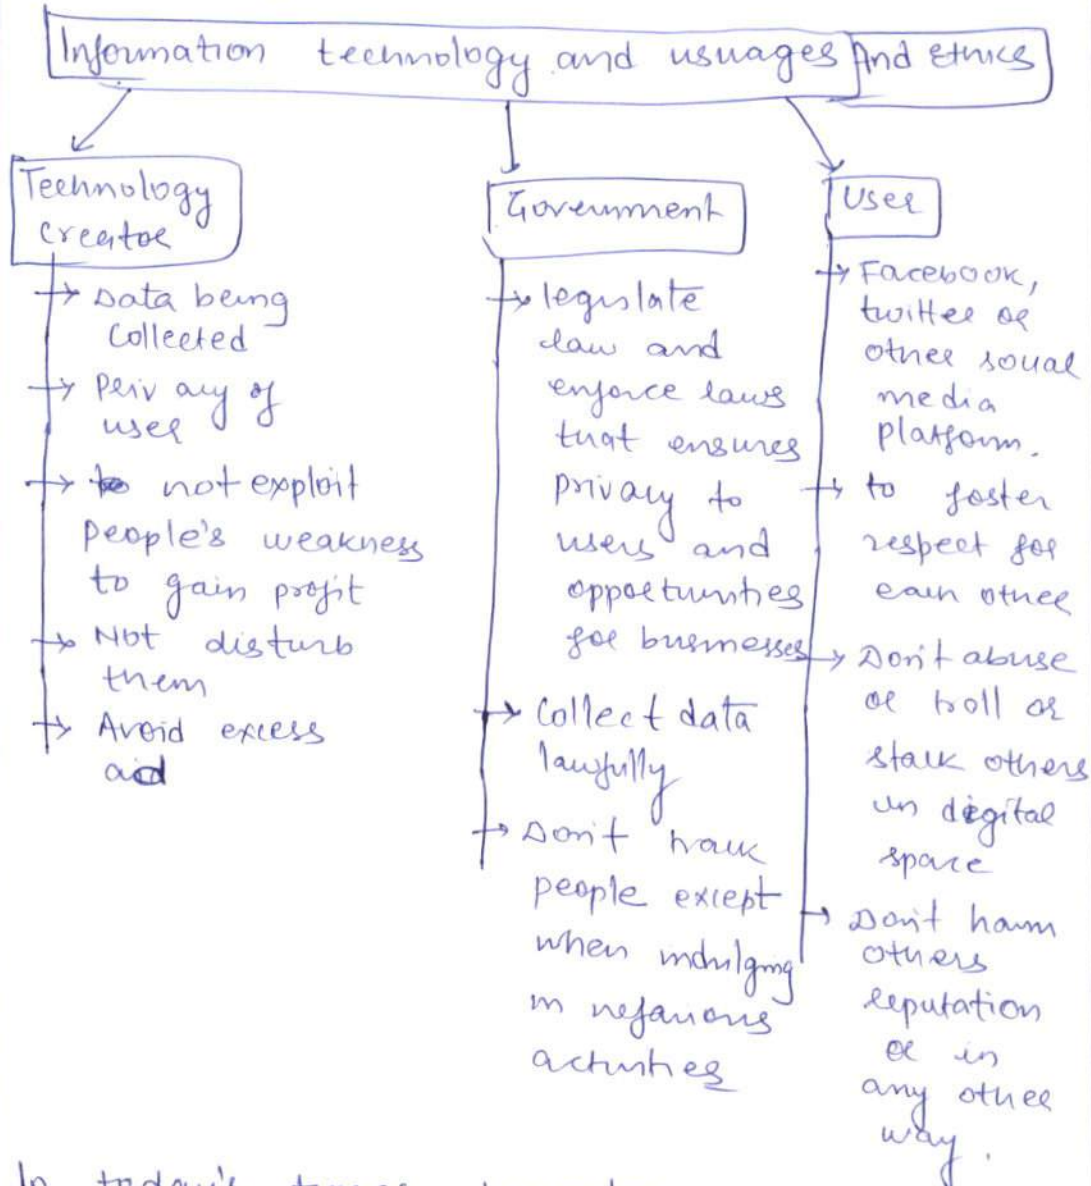 Information technology and usuages And Ethics
Technology
Creator
Data being
Collected
Privacy of
user
not exploit
people's weakness
to gain profit
Not disturb
them
Avoid excess
ad
Government
legislate
law and
enforce laws
that ensures
privacy to
users and
opportunities
for businesses
Collect data
lawfully
Don't track
people except
when indulging
in nefarious
activities
User
Facebook,
twitter or
other social
media
platform.
to foster
respect for
each other
Don't abuse
or troll or
stalk others
in digital
space
Don't harm
others
reputation
or in
any other
way.
In today's